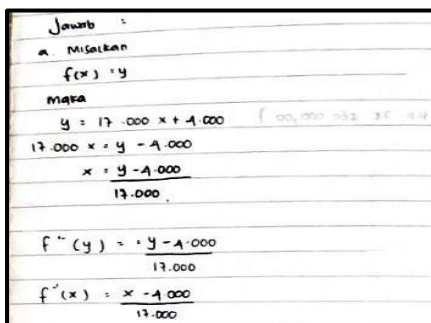 Jawab :
a. Misalkan
f(x) = y
maka
y = 17.000 x + 4.000
17.000 x = y - 4.000
x = y - 4.000
17.000.
f⁻¹(y) = y - 4.000
17.000
f⁻¹(x) = x - 4.000
17.000